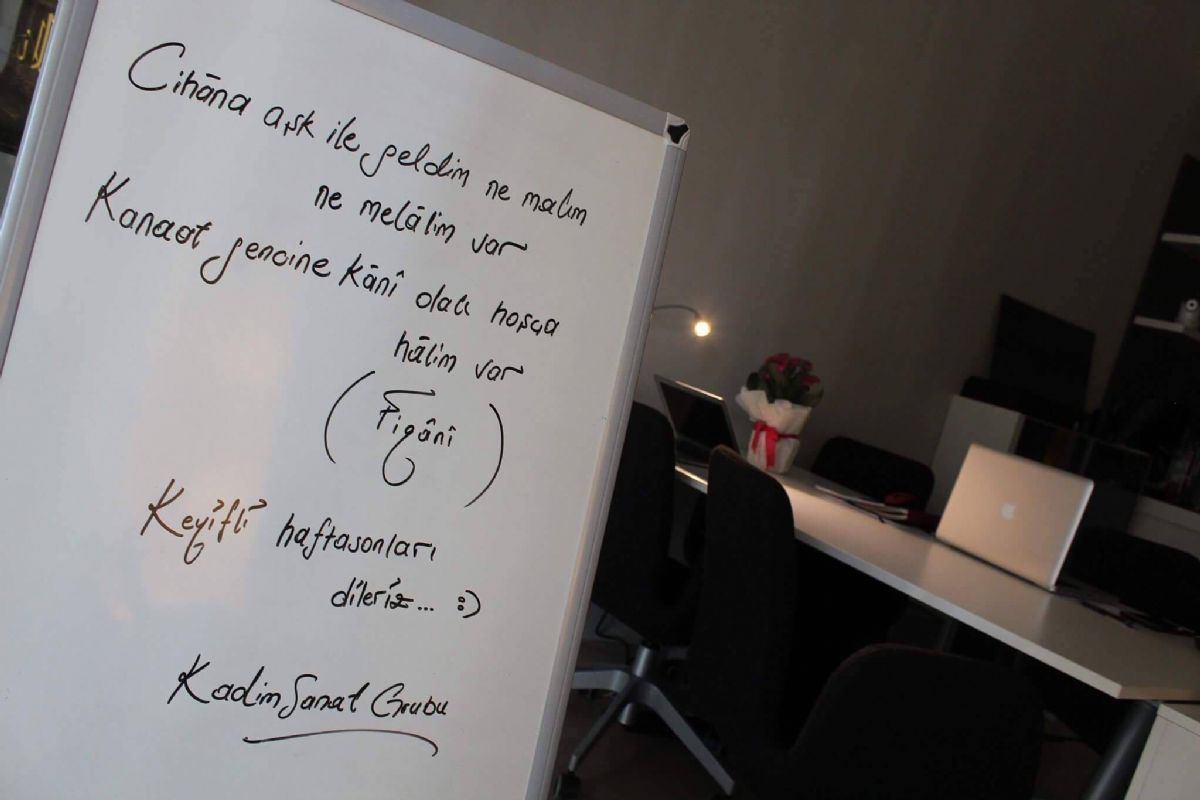 Cihāna aşk ile geldim ne malım
ne melālim var
Kanaat gencine kānî olalı hoşça
hālim var
( Figânî )
Keyifli haftasonları
dileriz... :)
Kadim Sanat Grubu